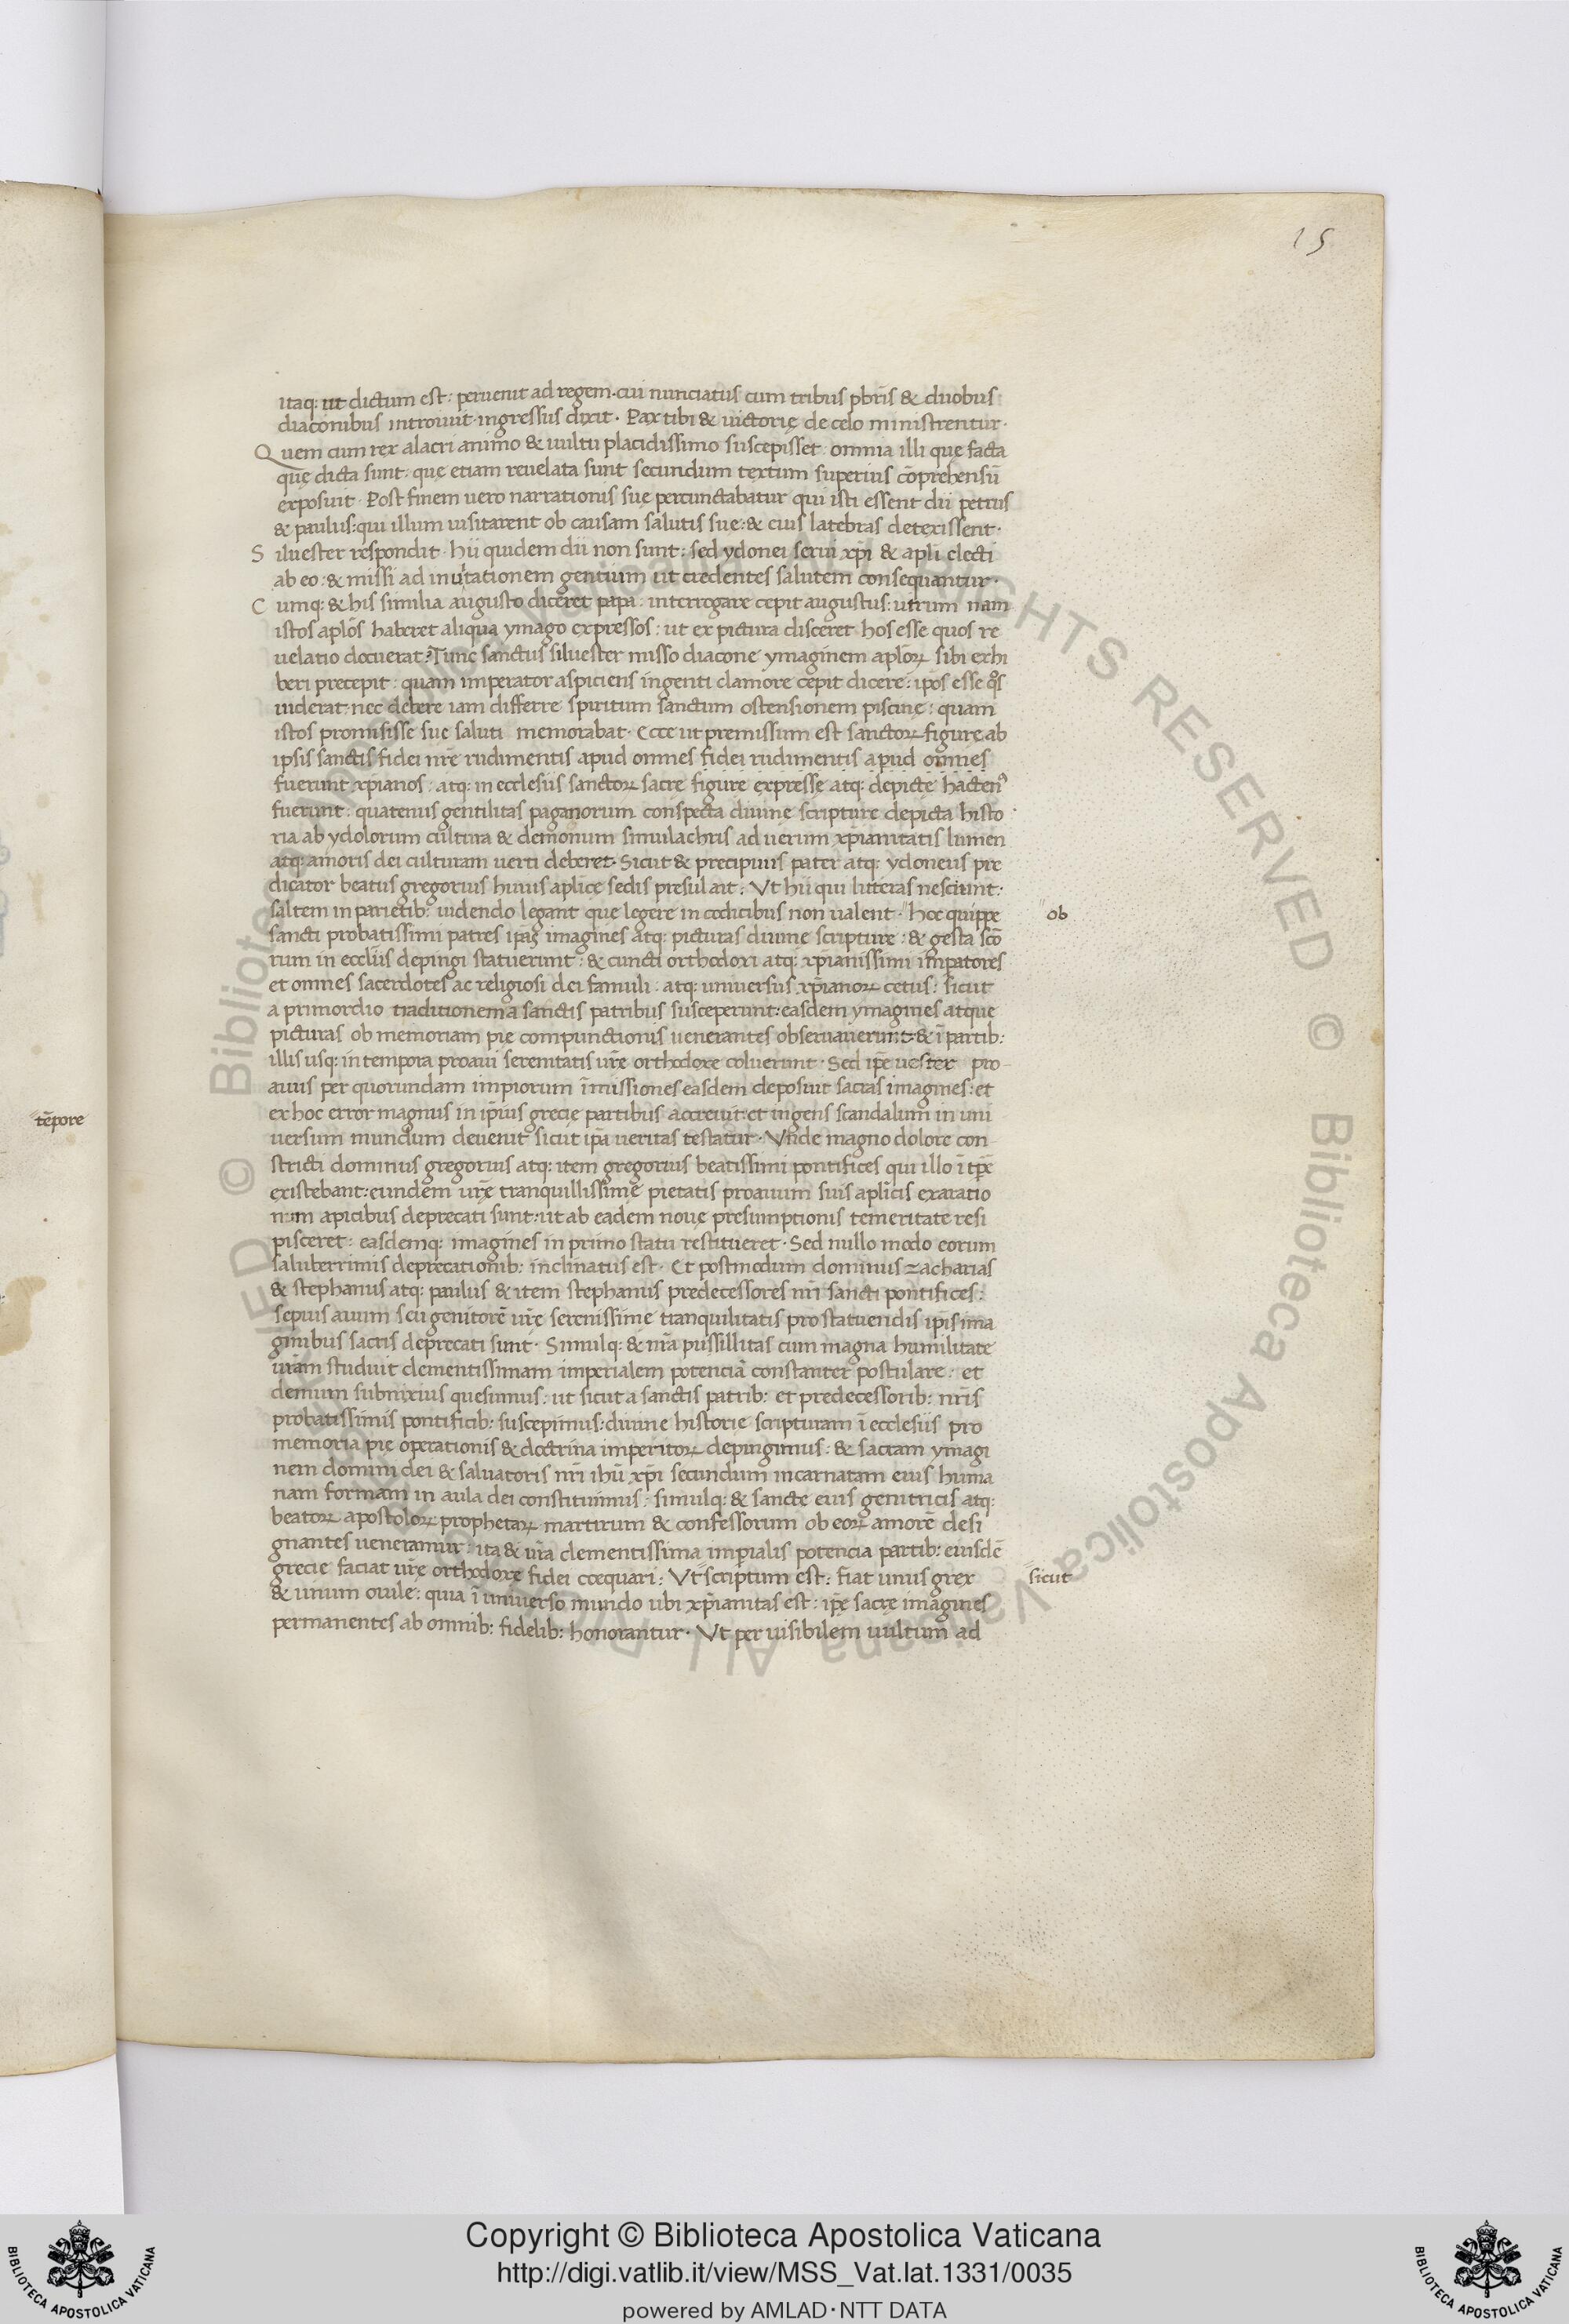 15
itaq: ut dictum est: peruenit ad regem. cui nunciatus cum tribus pbris̄ & duobus
diaconibus introiuit. ingressus dixit. Pax tibi & uictorię de celo ministrentur.
Quem cum rex alacri animo & uultu placidissimo suscepisset. omnia illi que facta
quę dicta sunt: quę etiam reuelata sunt secundum textum superius cōprehensū
exposuit. Post finem uero narrationis suę percunctabatur qui isti essent dii petrus
& paulus: qui illum uisitarent ob causam salutis sue: & eius latebras detexissent.
Siluester respondit. hii quidem dii non sunt: sed ydonei serui xp̄i & apl̄i electi
ab eo: & missi ad inuitationem gentium ut credentes salutem consequantur.
Cumq: & his similia augusto diceret papa. interrogare cepit augustus: utrum nam
istos aplōs haberet aliqua ymago expressos: ut ex pictura disceret hos esse quos re
uelatio docuerat? Tunc sanctus siluester misso diacone ymaginem aplōꝝ sibi exhi
beri precepit: quam imperator aspiciens ingenti clamore cepit dicere: ipōs esse qōs
uiderat: nec debere iam differre spiritum sanctum ostensionem piscinę: quam
istos promisisse sue saluti memorabat. Ecce ut premissum est sanctoꝝ figure ab
ipsis sanctis fidei nr̄e rudimentis apud omnes fidei rudimentis apud omnes
fuerunt xp̄ianos: atq: in ecclesiis sanctoꝝ sacre figure expresse atq: depictę hacten⁹
fuerunt: quatenus gentilitas paganorum conspecta diuinę scripture depicta histo
ria ab ydolorum cultura & demonum simulachris ad uerum xp̄ianitatis lumen
atq: amoris dei culturam uerti deberet. Sicut & precipuus pater atq: ydoneus pre
dicator beatus gregorius huius aplicę sedis presul ait: Vt hii qui litteras nesciunt.
saltem in parietib: uidendo legant que legere in codicibus non ualent. "hoc quippe
"ob
sancti probatissimi patres ip̄as imagines atq: picturas diuinę scripture: & gesta scō
rum in eccl̄iis depingi statuerunt: & cuncti orthodoxi atq: xp̄ianissimi imp̄atores
et omnes sacerdotes ac religiosi dei famuli: atq: uniuersus xp̄ianoꝝ cetus: sicut
a primordio traditionem a sanctis patribus susceperunt: easdem ymagines atque
picturas ob memoriam pię compunctionis uenerantes obseruauerunt: & ī partib:
illis usq: in tempora proaui serenitatis ur̄ę orthodoxe coluerunt. Sed ip̄e uester pro-
auus per quorundam impiorum īmissiones easdem deposuit sacras imagines: et
ex hoc error magnus in ip̄ius grecię partibus accreuit: et ingens scandalum in uni
uersum mundum deuenit sicut ip̄a ueritas testatur. Vnde magno dolore con-
stricti dominus gregorius atq: item gregorius beatissimi pontifices qui illo ī tp̄e
existebant: eundem ur̄ę tranquillissimę pietatis proauum suis aplicis exaratio
num apicibus deprecati sunt: ut ab eadem nouę presumptionis temeritate resi
pisceret: easdemq: imagines in primo statu restitueret. Sed nullo modo eorum
saluberrimis deprecationib: inclinatus est. Et postmodum dominus zacharias
& stephanus atq: paulus & item stephanus predecessores nr̄i sancti pontifices:
sepius auum seu genitorē ur̄ę serenissime tranquilitatis pro statuendis ip̄is ima
ginibus sacris deprecati sunt. Simulq: & nr̄a pussillitas cum magna humilitate
ur̄am studuit clementissimam imperialem potenciā constanter postulare: et
demum subnixius quesumus: ut sicut a sanctis patrib: et predecessorib: nr̄is
probatissimis pontificib: suscepimus: diuine historie scripturam ī ecclesiis pro
memoria pię operationis & doctrina imperitoꝝ depingimus: & sacram ymagi
nem domini dei & saluatoris nr̄i ihū xp̄i secundum incarnatam eius huma
nam formam in aula dei constituimus: simulq: & sancte eius genitricis atq:
beatoꝝ apostoloꝝ prophetaꝝ martirum & confessorum ob eoꝝ amorē desi
gnantes ueneramur: ita & ur̄a clementissima imp̄ialis potencia partib: eiusdē
grecię faciat ur̄ę orthodoxe fidei coequari: Vt "scriptum est: fiat unus grex
"sicut
& unum ouile: quia ī uniuerso mundo ubi xp̄ianitas est: ip̄ę sacrę imagines
permanentes ab omnib: fidelib: honorantur. Vt per uisibilem uultum ad
tēpore
© Biblioteca Apostolica Vaticana ALL RIGHTS RESERVED
Copyright © Biblioteca Apostolica Vaticana
http://digi.vatlib.it/view/MSS_Vat.lat.1331/0035
powered by AMLAD・NTT DATA
BIBLIOTECA APOSTOLICA VATICANA
BIBLIOTECA APOSTOLICA VATICANA